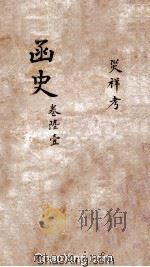 災祥考
函史
卷陸壹